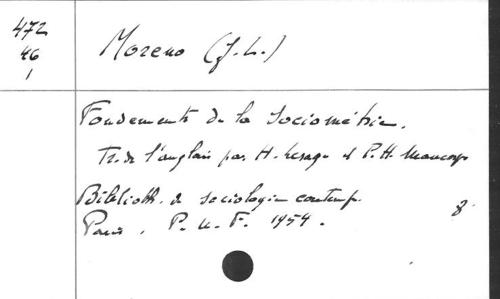 472
46
1
Moreno (J. L.)
Fondements de la Sociométrie.
Tr. de l'anglais par H. Lesage et P. H. Maucorps
Biblioth. de sociologie contemp.
Paris, P. U. F. 1954.
8°